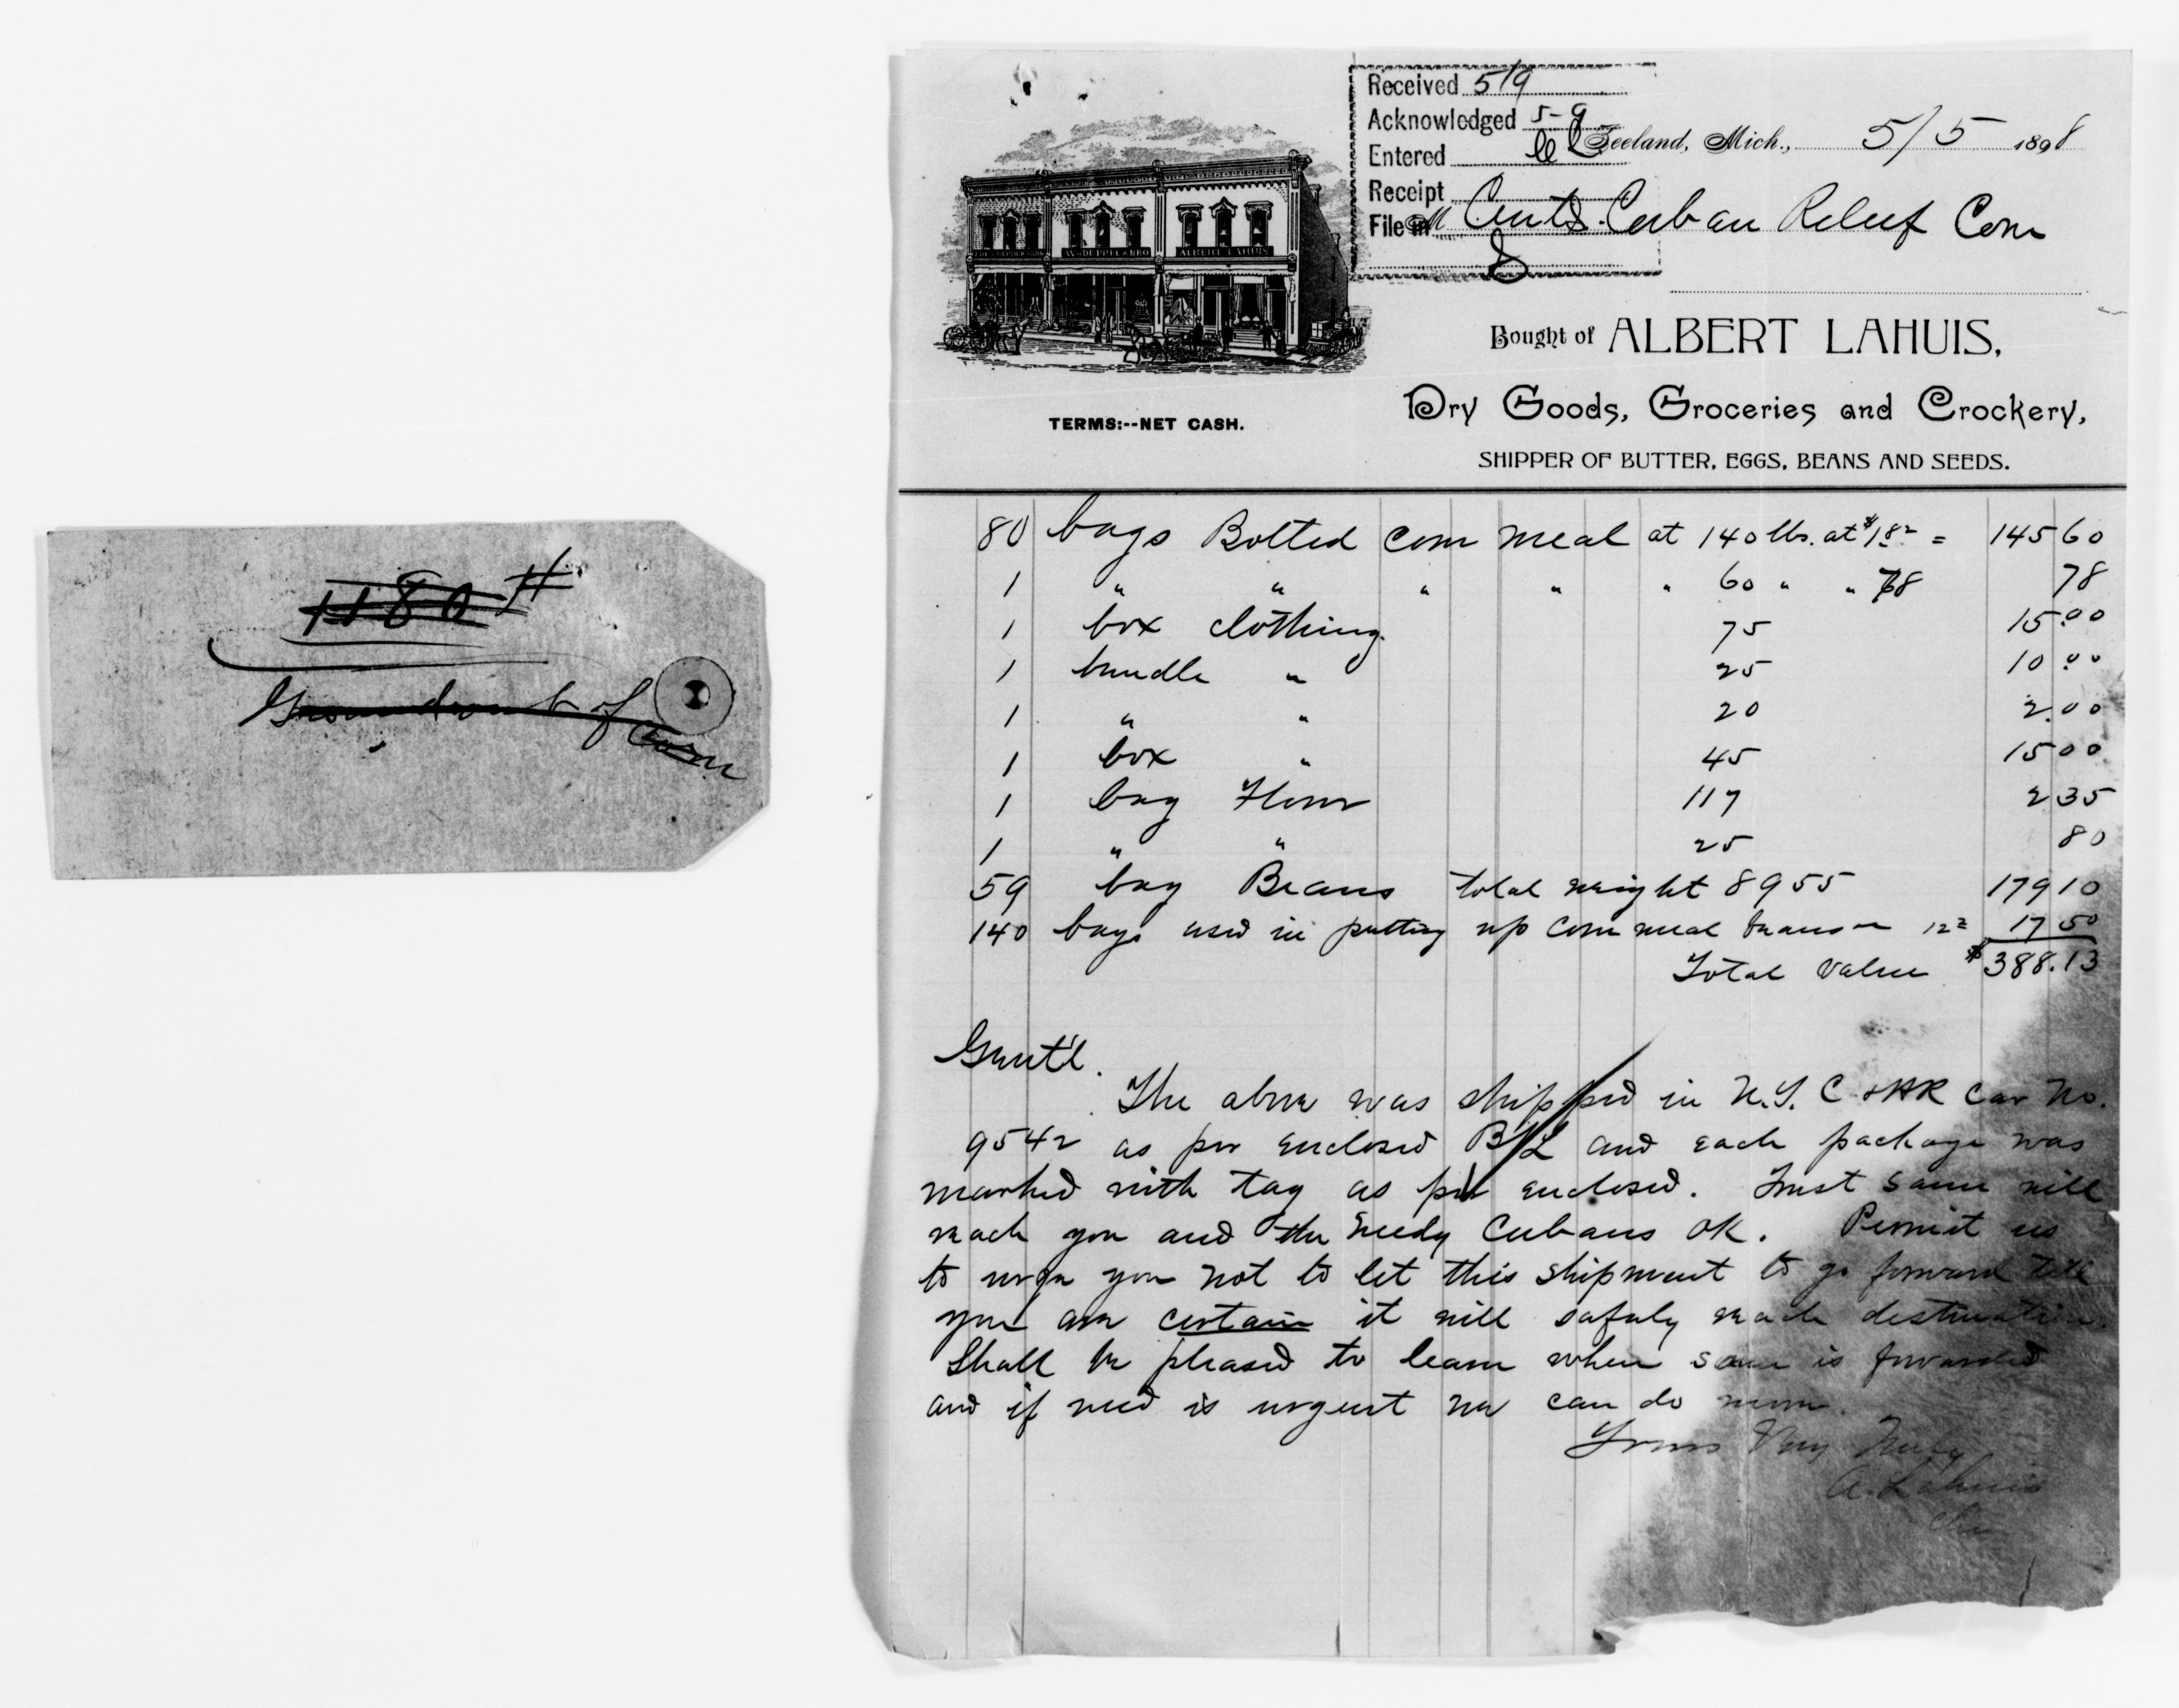 1180 #
of Corn
Received 5/9
Acknowledged 5-9
Entered
Receipt
File in
Zeeland, Mich., 5/5 1898
M Cent. Cuban Relief Com
W. DEPREE & BRO.
ALBERT LAHUIS
Bought of ALBERT LAHUIS,
Dry Goods, Groceries and Crockery,
TERMS:--NET CASH.
SHIPPER OF BUTTER, EGGS, BEANS AND SEEDS.
80 bags Bolted corn meal at 140 lbs. at $1.82 = 145 60
1 " " " " " 60 " " 78 78
1 box clothing 75 15.00
1 bundle " 25 10.00
1 " " 20 2.00
1 box " 45 15 00
1 bag Flour 117 2 35
1 " " 25 80
59 bag Beans total weight 8955 179 10
140 bags used in putting up corn meal beans 17 50
Total Value $388.13
Gent'l.
The above was shipped in N.Y. C & HR Car No.
9542 as per enclosed B/L and each package was
marked with tag as per enclosed. Trust same will
reach you and the needy Cubans OK. Permit us
to urge you not to let this shipment to go forward till
you are certain it will safely reach destination.
Shall be pleased to learn when same is forwarded
and if need is urgent we can do more.
Yours Very Truly
A. Lahuis